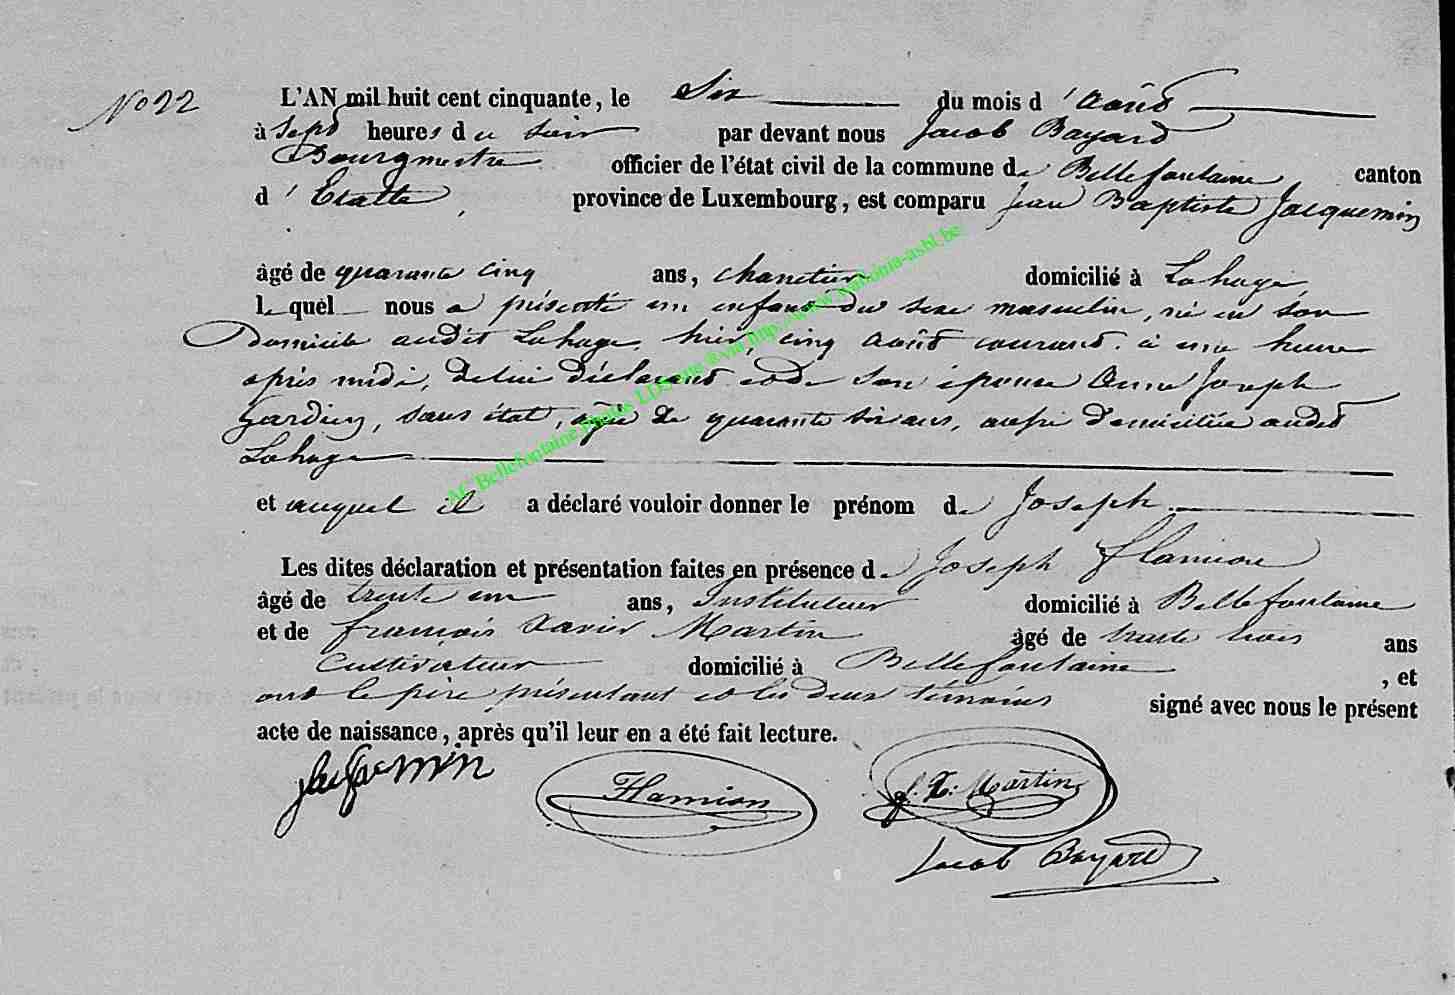 No 22
L'AN mil huit cent cinquante, le Six du mois d'août
à Sept heures du soir par devant nous Jacob Bayard
Bourgmestre officier de l'état civil de la commune de Bellefontaine canton
d'Etalle, province de Luxembourg, est comparu Jean Baptiste Jacquemin
âgé de quarante cinq ans, charretier domicilié à Lahage
lequel nous a présenté un enfant du sexe masculin, né en son
Domicile audit Lahage, hier, cinq août courant, à une heure
après midi, de lui déclarant et de son épouse Anne Joseph
Gardien, sans état, agée de quarante six ans, aussi Domiciliée audit
Lahage
et auquel il a déclaré vouloir donner le prénom de Joseph
Les dites déclaration et présentation faites en présence de Joseph Flamion
âgé de trente un ans, Instituteur domicilié à Bellefontaine
et de françois Xavier Martin âgé de trente trois ans
Cultivateur domicilié à Bellefontaine, et
ont le père présentant et les deux témoins signé avec nous le présent
acte de naissance, après qu'il leur en a été fait lecture.
Jacquemin Flamion f. X. Martin
Jacob Bayard